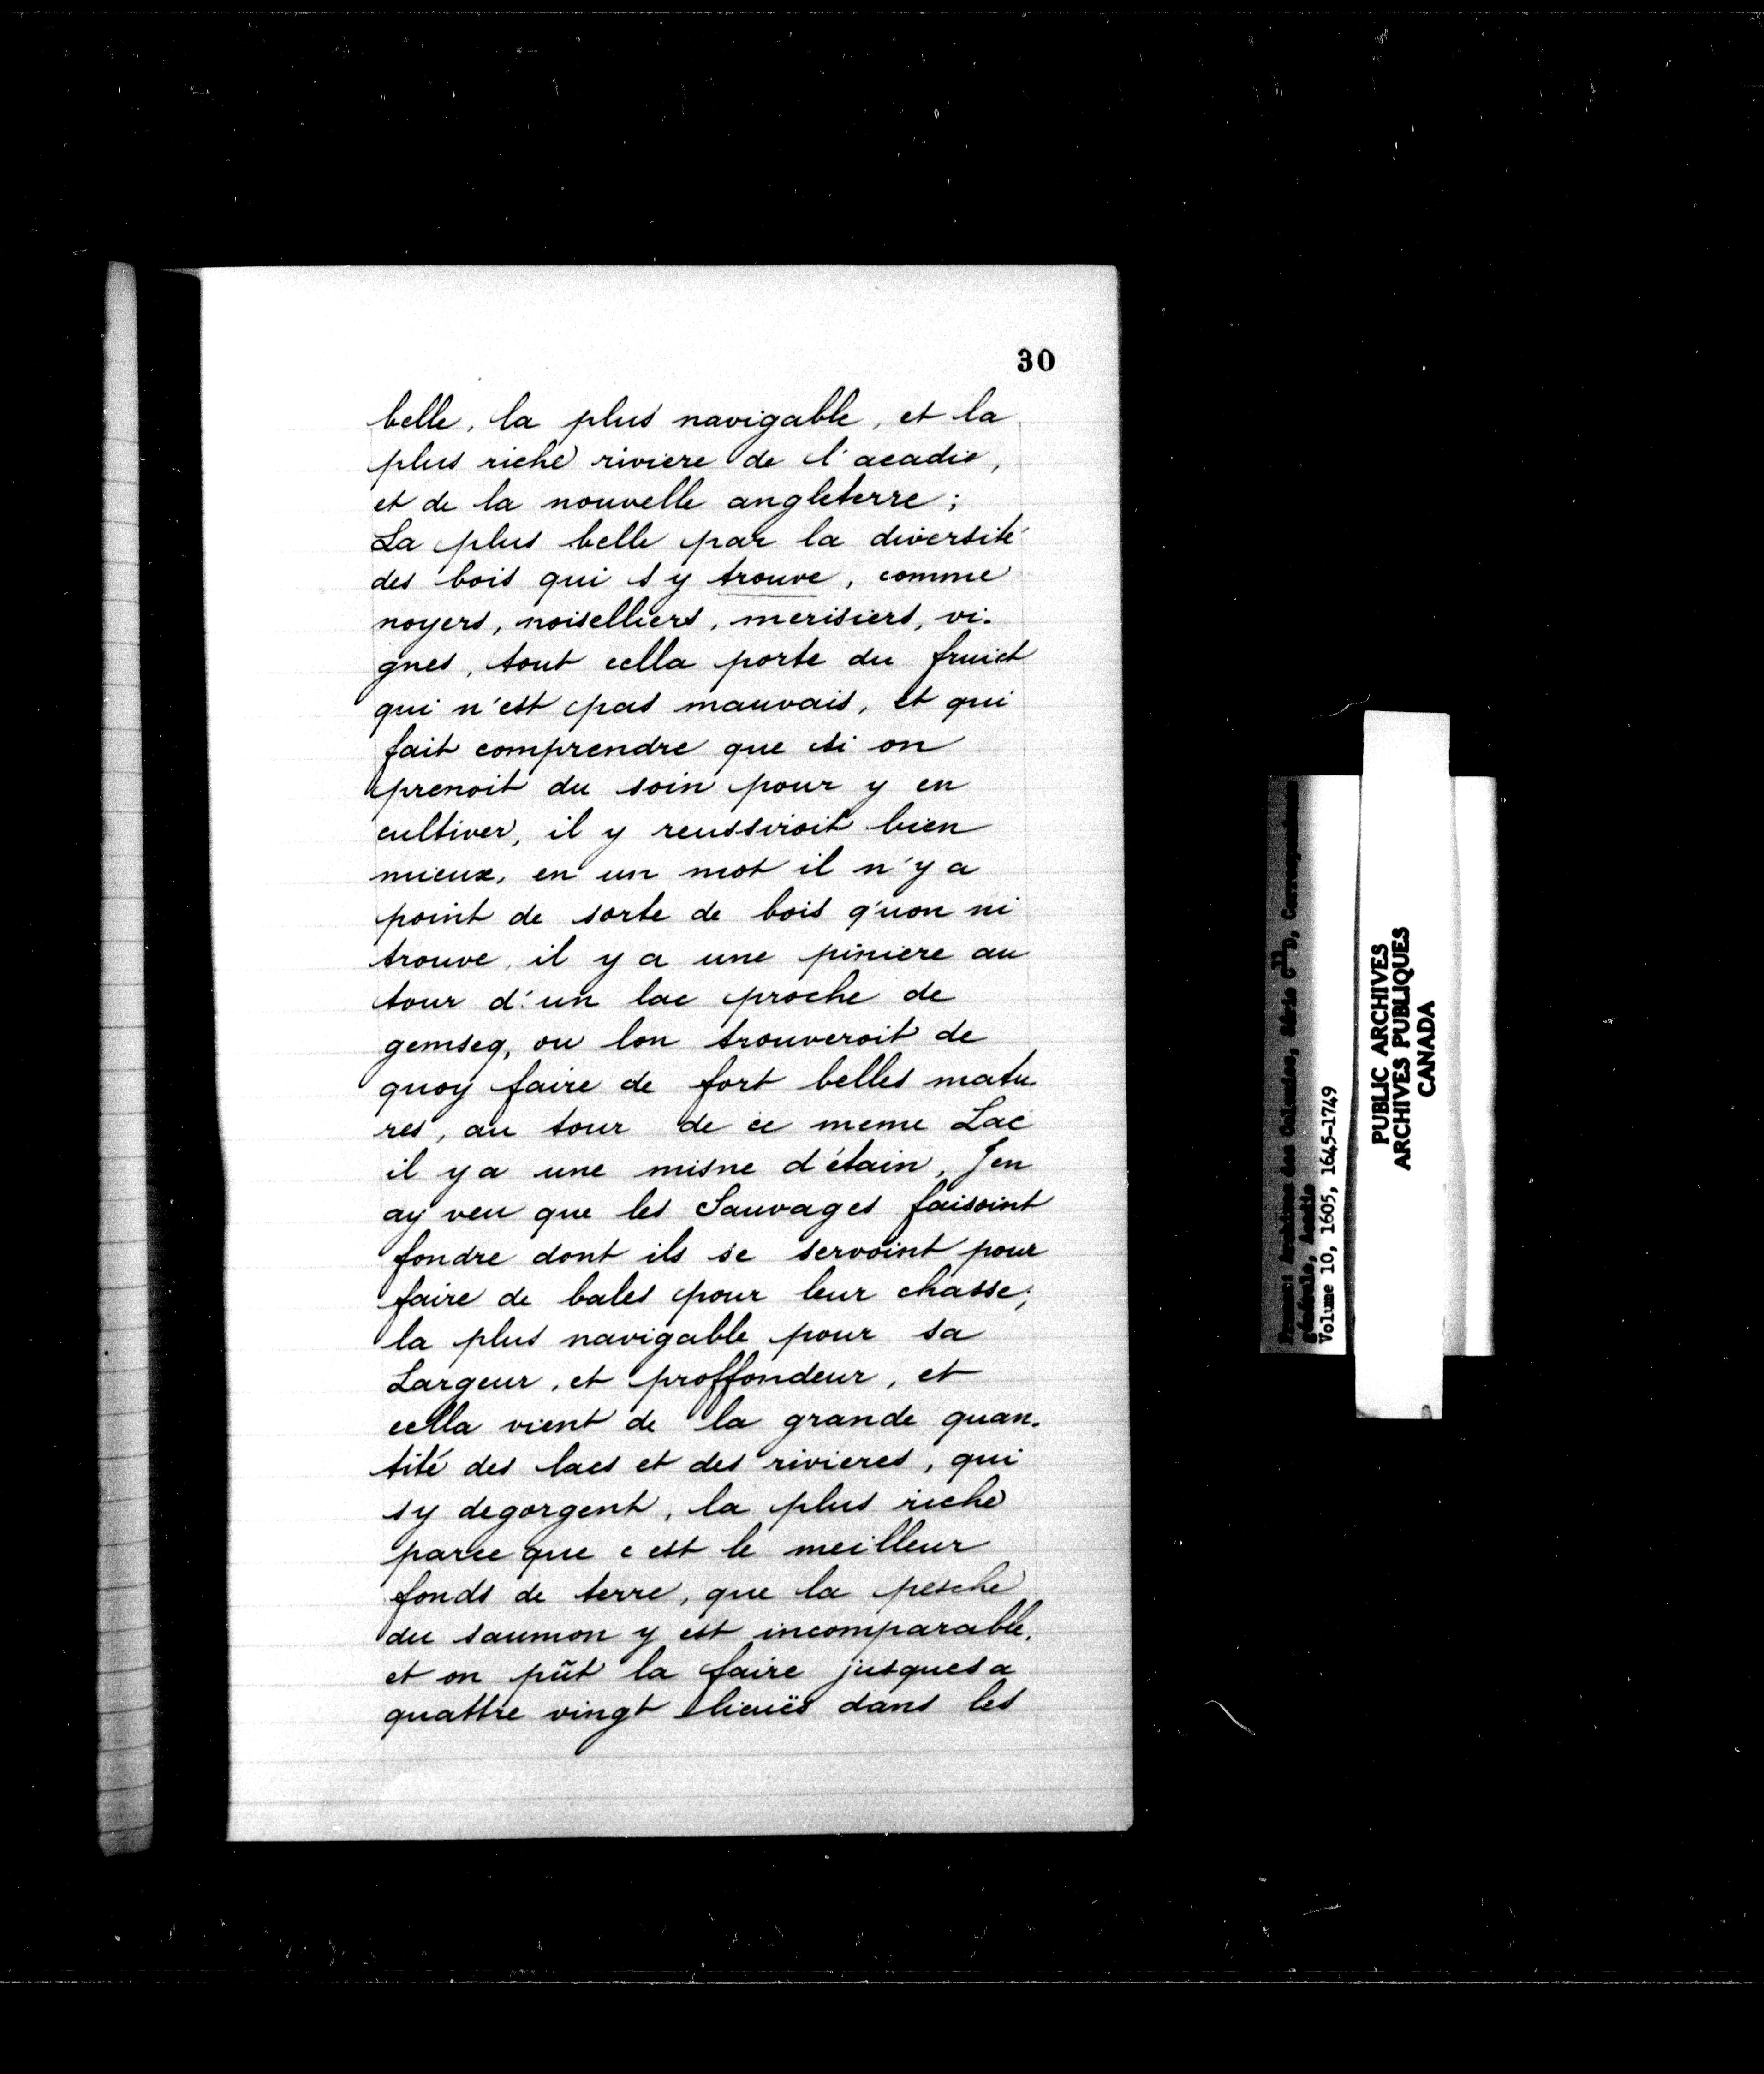 30
belle, la plus navigable, et la
plus riche riviere de l'acadie,
et de la nouvelle angleterre;
La plus belle par la diversité
des bois qui s y trouve, comme
noyers, noiselliers, merisiers, vi-
gnes, tout cella porte du fruict
qui n'est pas mauvais, et qui
fait comprendre que si on
prenoit du soin pour y en
cultiver, il y reussiroit bien
mieux, en un mot il n'y a
point de sorte de bois q'uon ni
trouve, il y a une piniere au
tour d'un lac proche de
gemseq, ou lon trouveroit de
quoy faire de fort belles matu-
res, au tour de ce meme Lac
il y a une misne d'étain, J'en
ay veu que les Sauvages faisoint
fondre dont ils se servoint pour
faire de bales pour leur chasse;
la plus navigable pour sa
Largeur, et proffondeur, et
cella vient de la grande quan-
tité des lacs et des rivieres, qui
sy degorgent, la plus riche
parce que c est le meilleur
fonds de terre, que la pesche
du saumon y est incomparable,
et on pût la faire jusques a
quattre vingt lieuës dans les
PUBLIC ARCHIVES
ARCHIVES PUBLIQUES
CANADA
France: Archives des Colonies, Série C11D, Correspondance
générale, Acadie
Volume 10, 1605, 1645-1749